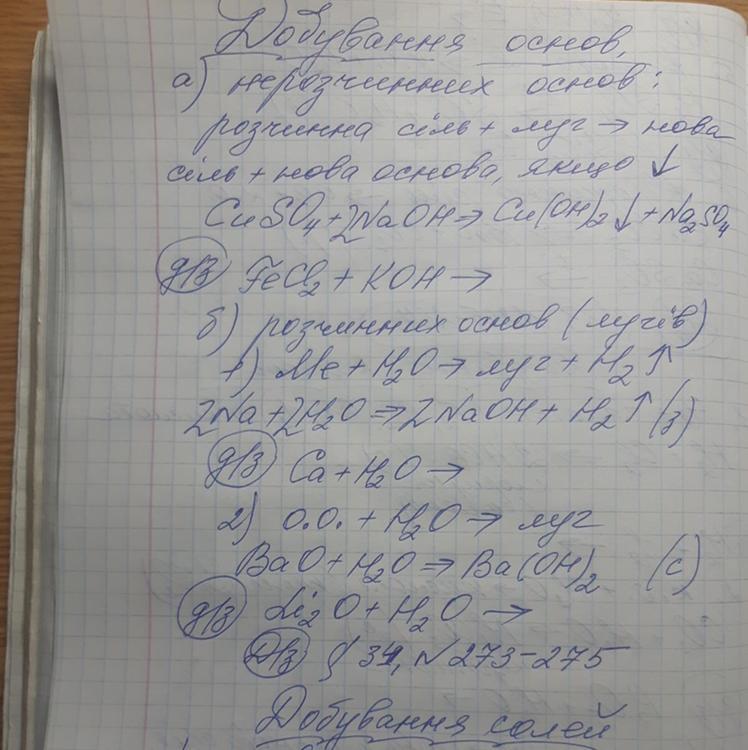 Добування основ,
а) нерозчинних основ:
розчинна сіль + луг → нова
сіль + нова основа, якщо ↓
CuSO₄ + 2NaOH → Cu(OH)₂↓ + Na₂SO₄
д/з FeCl₂ + KOH →
б) розчинних основ (лугів)
1) Me + H₂O → луг + H₂↑
2Na + 2H₂O → 2NaOH + H₂↑ (з)
д/з Ca + H₂O →
2) О.О. + H₂O → луг
BaO + H₂O → Ba(OH)₂ (с)
д/з Li₂O + H₂O →
Д/з § 34, № 273-275
Добування солей